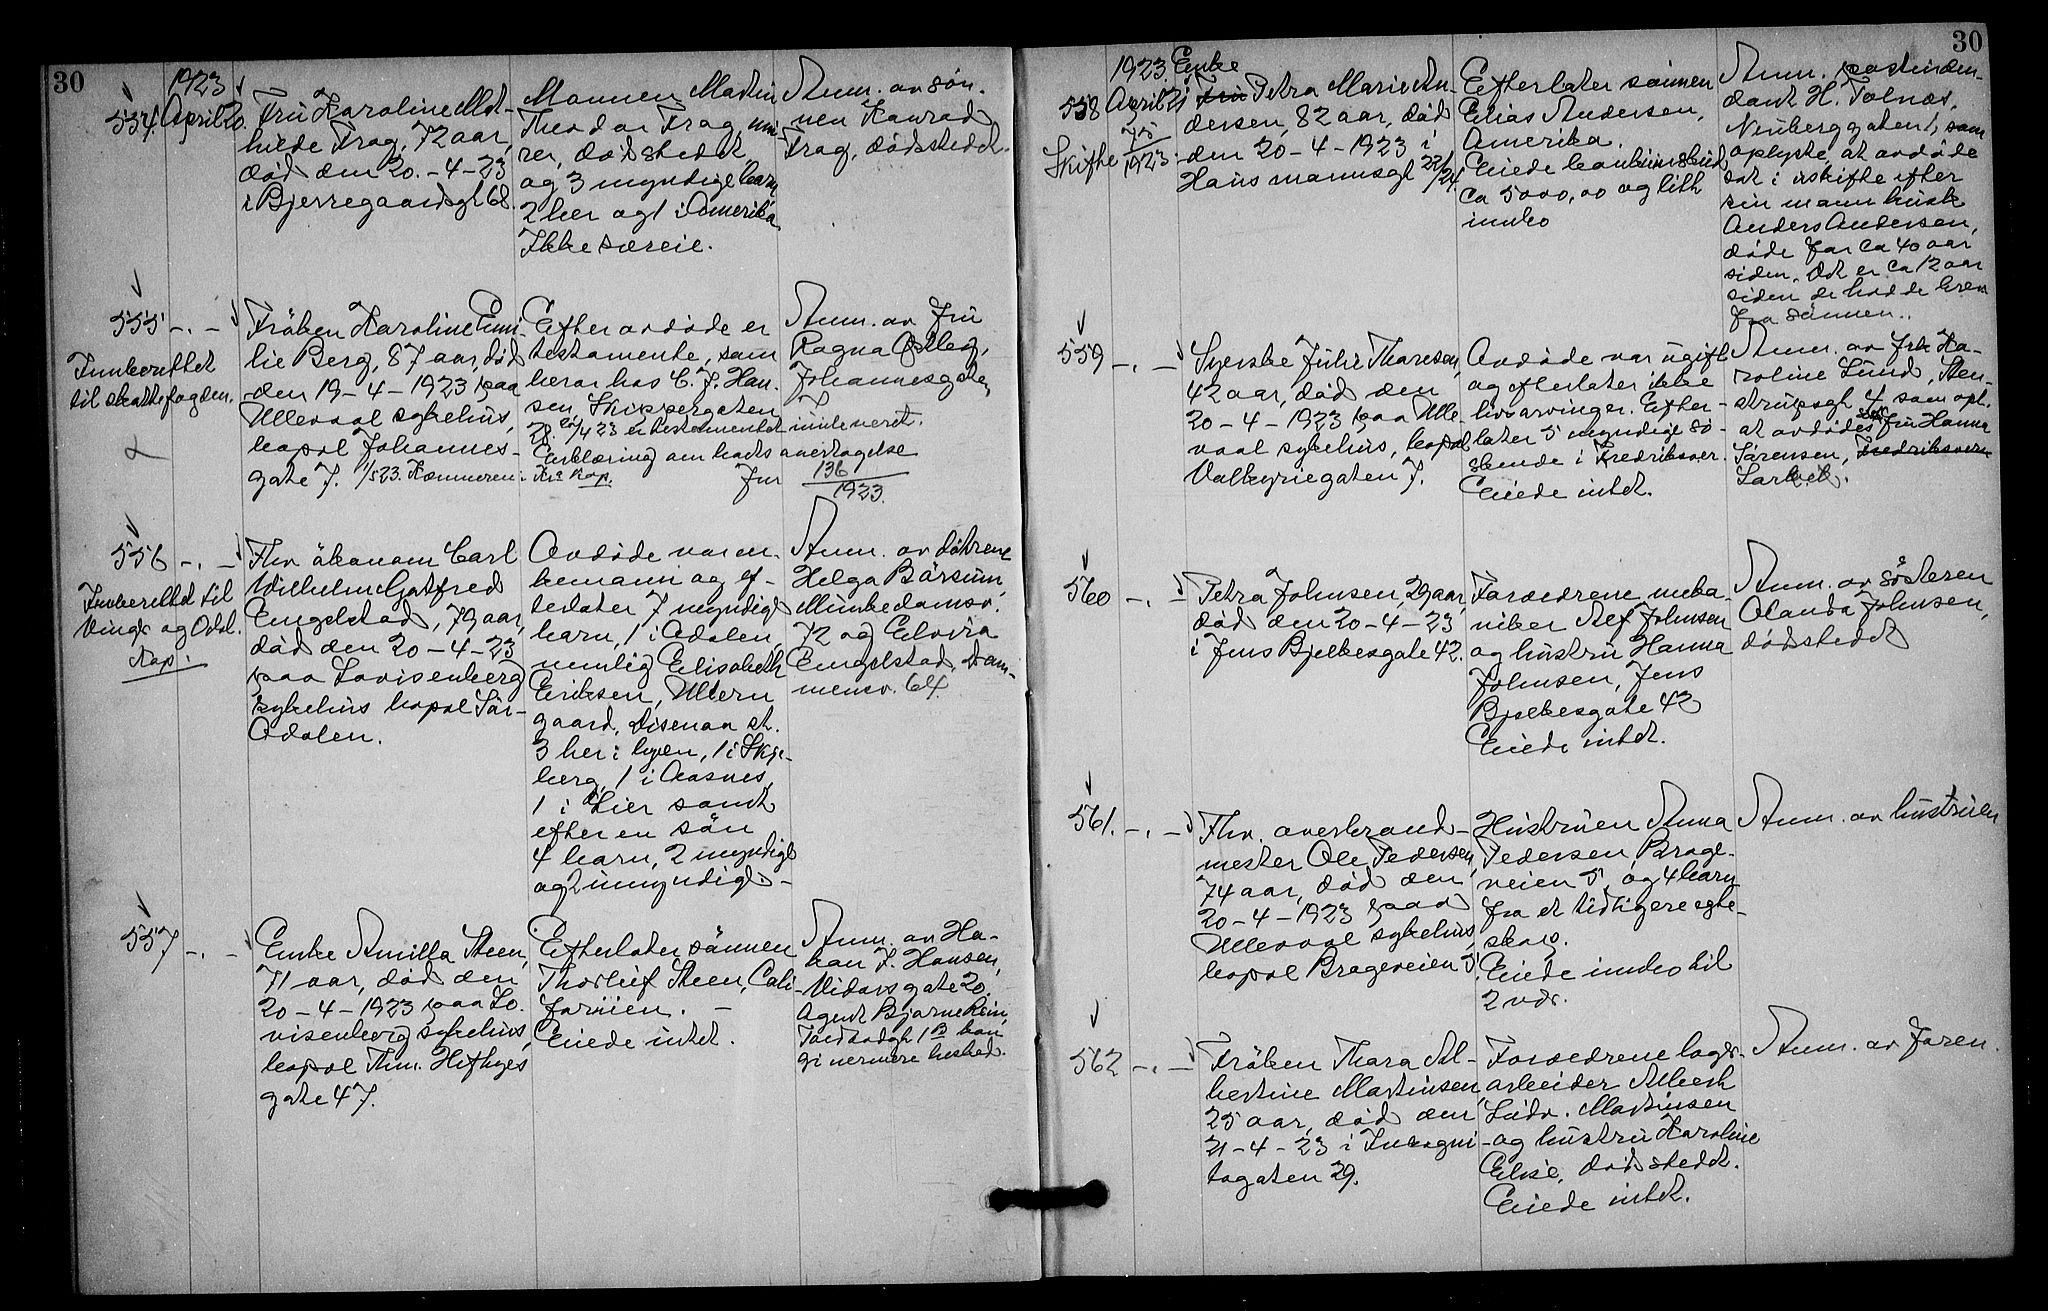 30
1923
554. April 20.
Fru Karoline Mat-
hilde Frag, 72 aar,
död den 20.-4-23
i Bjerregaardsgt 68.
Mannen Martin
Theodor Frag, mu-
rer, dödsstedet
og 3 myndige barn,
2 her og 1 i Amerika
Ikke særeie.
Anm. av sön-
nen Konrad
Frag, dödsstedet.
555 -.-
Innberettet
til skattefogden.
Fröken Karoline Emi-
lie Berg, 87 aar, död
den 19-4-1923 paa
Ullevaal sykehus,
bopæl Johannes-
gate 7. 1/5 23. Kæmneren
Efter avdöde er
testamente, som
beror hos C. J. Han-
sen, Skippergaten
28. 20/4 23 er testamentet innleveret.
Erklæring om boets overtagelse
Kra Kap. Jnr 136
1923.
Anm. av Fru
Ragna
Johannesgate
7
556 -.-
Innberettet til
Vinger og Odal.
dap.
Fhv ökonom Carl
Wilhelm Gotfred
Engelstad, 79 aar,
död den 20-4-23
paa Lovisenberg
sykehus bopæl Sör-
Odalen.
Avdöde var en-
kemann og ef-
terlater 7 myndige
barn, 1 i Odalen,
nemlig Elisabeth
Eriksen, Ullern
gaard, Disenaa st.
3 her i byen, 1 i Skje-
berg, 1 i Aasnes,
1 i Lier samt
efter en sön
4 barn, 2 myndige
og 2 umyndige.-
Anm. av döttrene
Helga Börsum,
Munkedamsv.
72 og Elvira
Engelstad, Dam-
mensv. 64.
557 -.-
Enke Amilla Steen,
71 aar, död den
20-4-1923 paa Lo-
visenberg sykehus,
bopæl Thv. Meyers
gate 47.
Efterlater sönnen
Thorleif Steen, Cali-
fornien. -
Eiede intet.
Anm. av Ha-
kon J. Hansen,
Vidarsgate 20.
Agent Bjarne Rein,
Toftbodgt 1B kan
gi nermere besked.
30
1923. Enke
558 April 21 Fru Petra Marie An-
dersen, 82 aar, död
den 20-4-1923 i
Hausmannsgt 22/24.
Skifte 75
1923.
Efterlater sönnen
Elias Andersen,
Amerika.
Eiede bankinnskud
ca 5000,00 og litt
innbo
Anm.
H. Tolnæs,
Neuberggaten 1, som
oplyste, at avdöde
sat i uskifte efter
sin mann kusk
Anders Andersen,
döde for ca 40 aar
siden. Det er ca 12 aar
siden de hadde brev
fra sönnen..
559 -.-
Syerske Julie Thoresen,
42 aar, död den
20-4-1923 paa Ulle-
vaal sykehus, bopæl
Valkyriegaten 7.
Avdöde var ugift
og efterlater ikke
livsarvinger. Efter-
later 5 myndige sö-
skende i Fredriksver.
Eiede intet.
Anm. av frk Ka-
roline Lund, Sten-
strupsgt 4 som opl.
at avdödes fru Hanna
Sörensen, Fredriksvern
Larvik.
560 -.-
Petra Johnsen, 29 aar,
död den 20-4-23
i Jens Bjelkesgate 42.
Forældrene meka-
niker Alf Johnsen
og hustru Hanna
Johnsen, Jens
Bjelkesgate 42
Eiede intet.
Anm. av sösteren
Olanda Johnsen,
dödsstedet
561. -.-
Fhv. overbrand-
mester Ole Pedersen,
74 aar, död den
20-4-1923 paa
Ullevaal sykehus,
bopæl Brageveien 5.
Hustruen Anna
Pedersen, Brage-
veien 5, og 4 barn
fra et tidligere egte-
skap.
Eiede innbo til
2 vær.
Anm. av hustruen
562 -.-
Fröken Thora Al-
bertine Martinsen,
25 aar, död den
21-4-23 i Incogni-
togaten 29.
Forældrene lager-
arbeider Albert
Ludv. Martinsen
og hustru Karoline
Elise, dödsstedet.
Eiede intet.
Anm. av faren.